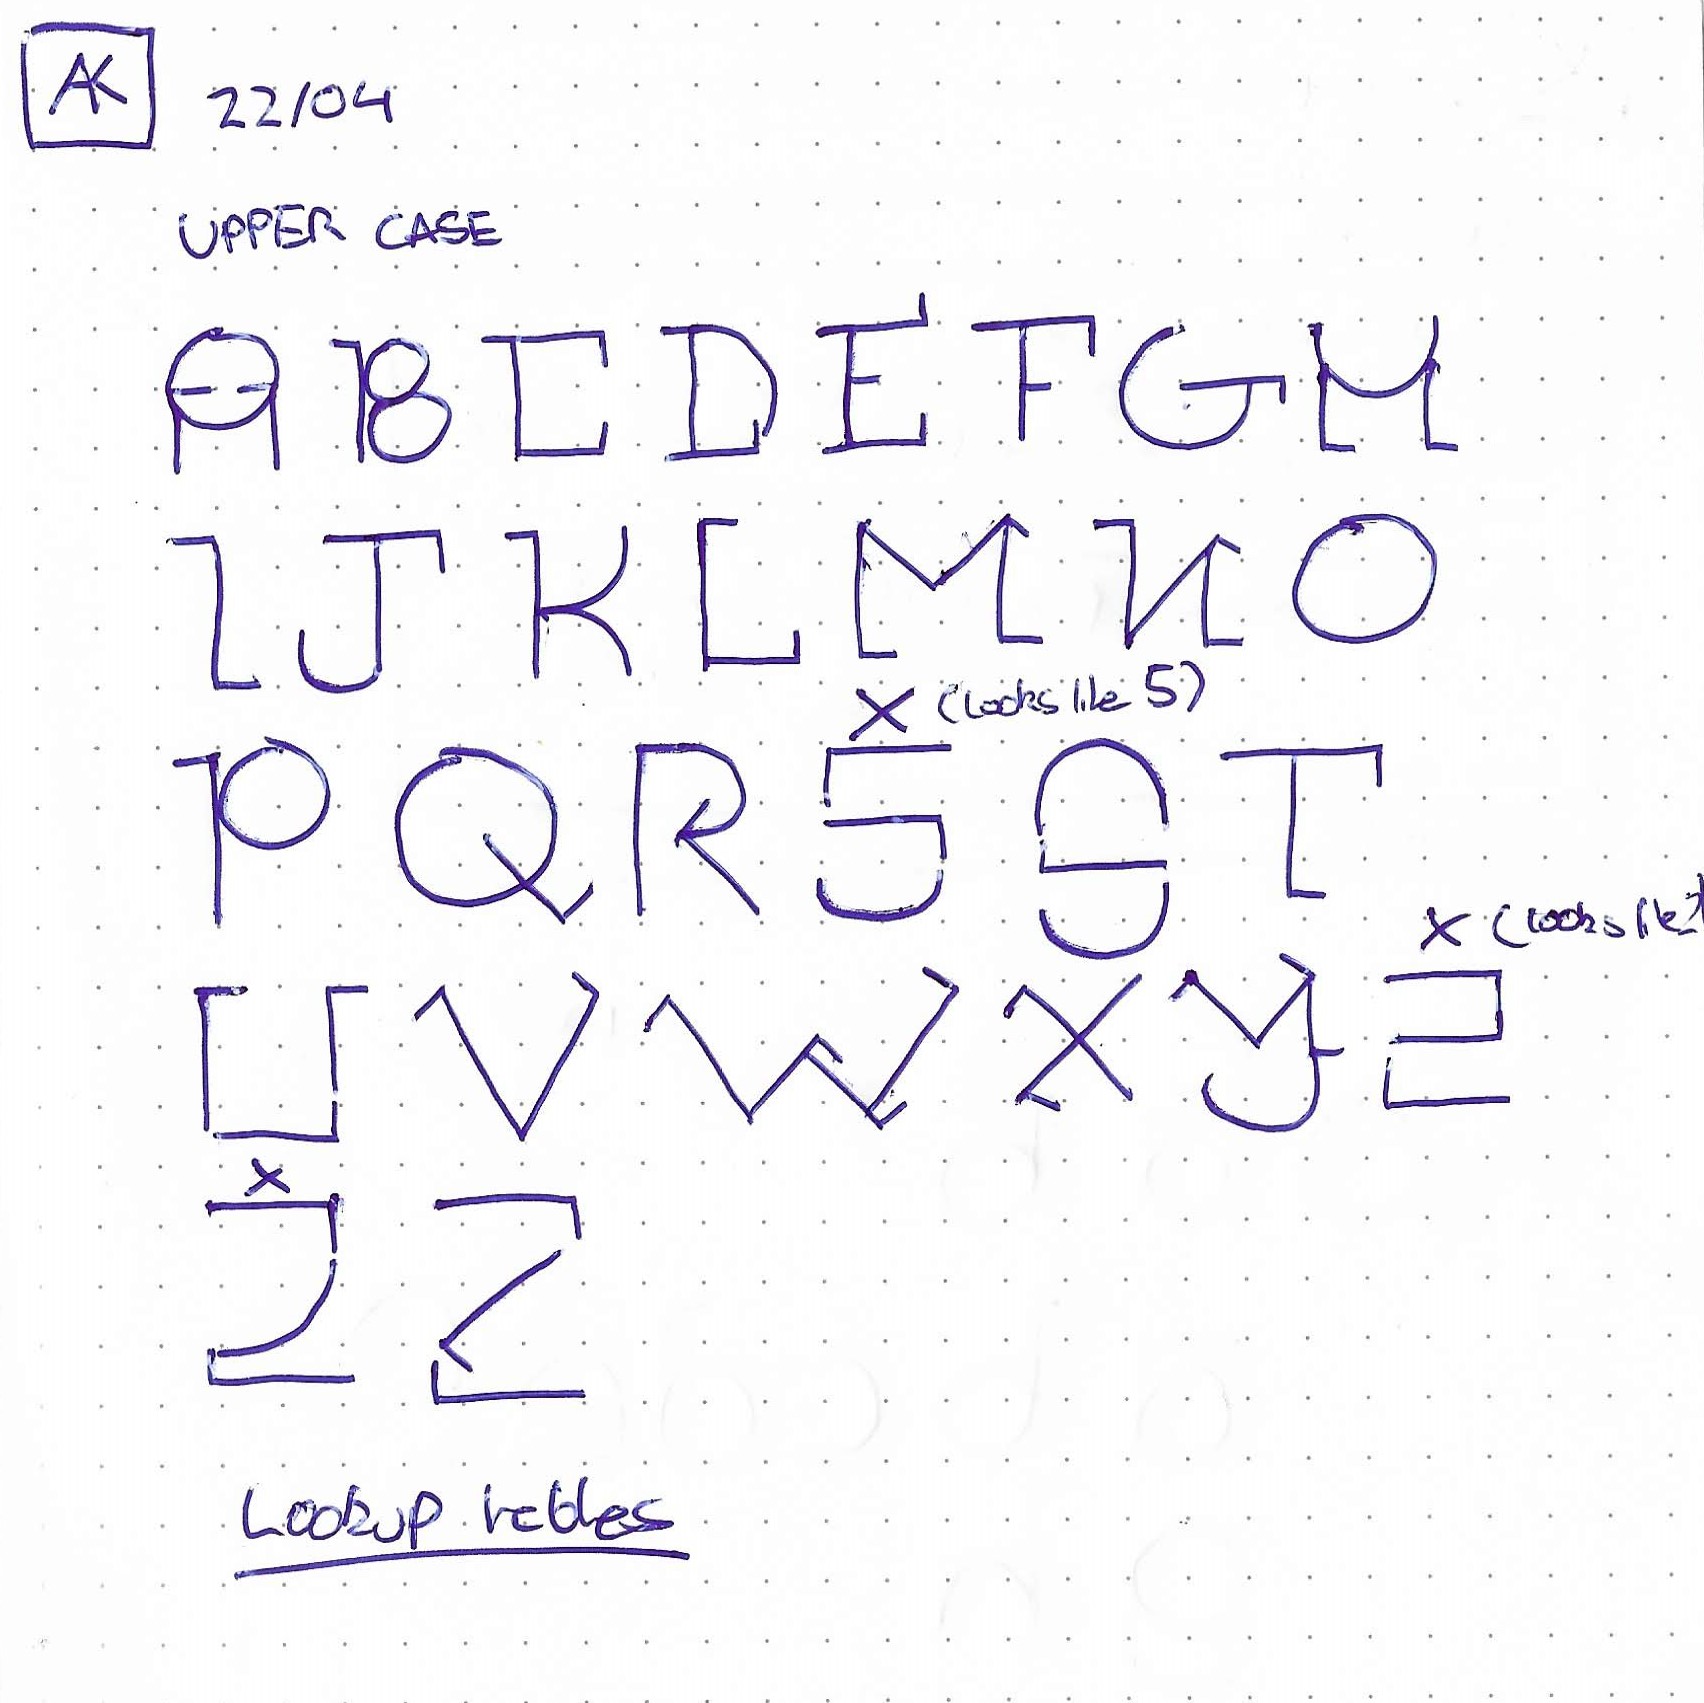 AK 22/04
UPPER CASE
A B C D E F G H
I J K L M N O
X (looks like 5)
P Q R S S T
X (looks like 2)
U V W X Y Z
X
Z Z
Lookup tables